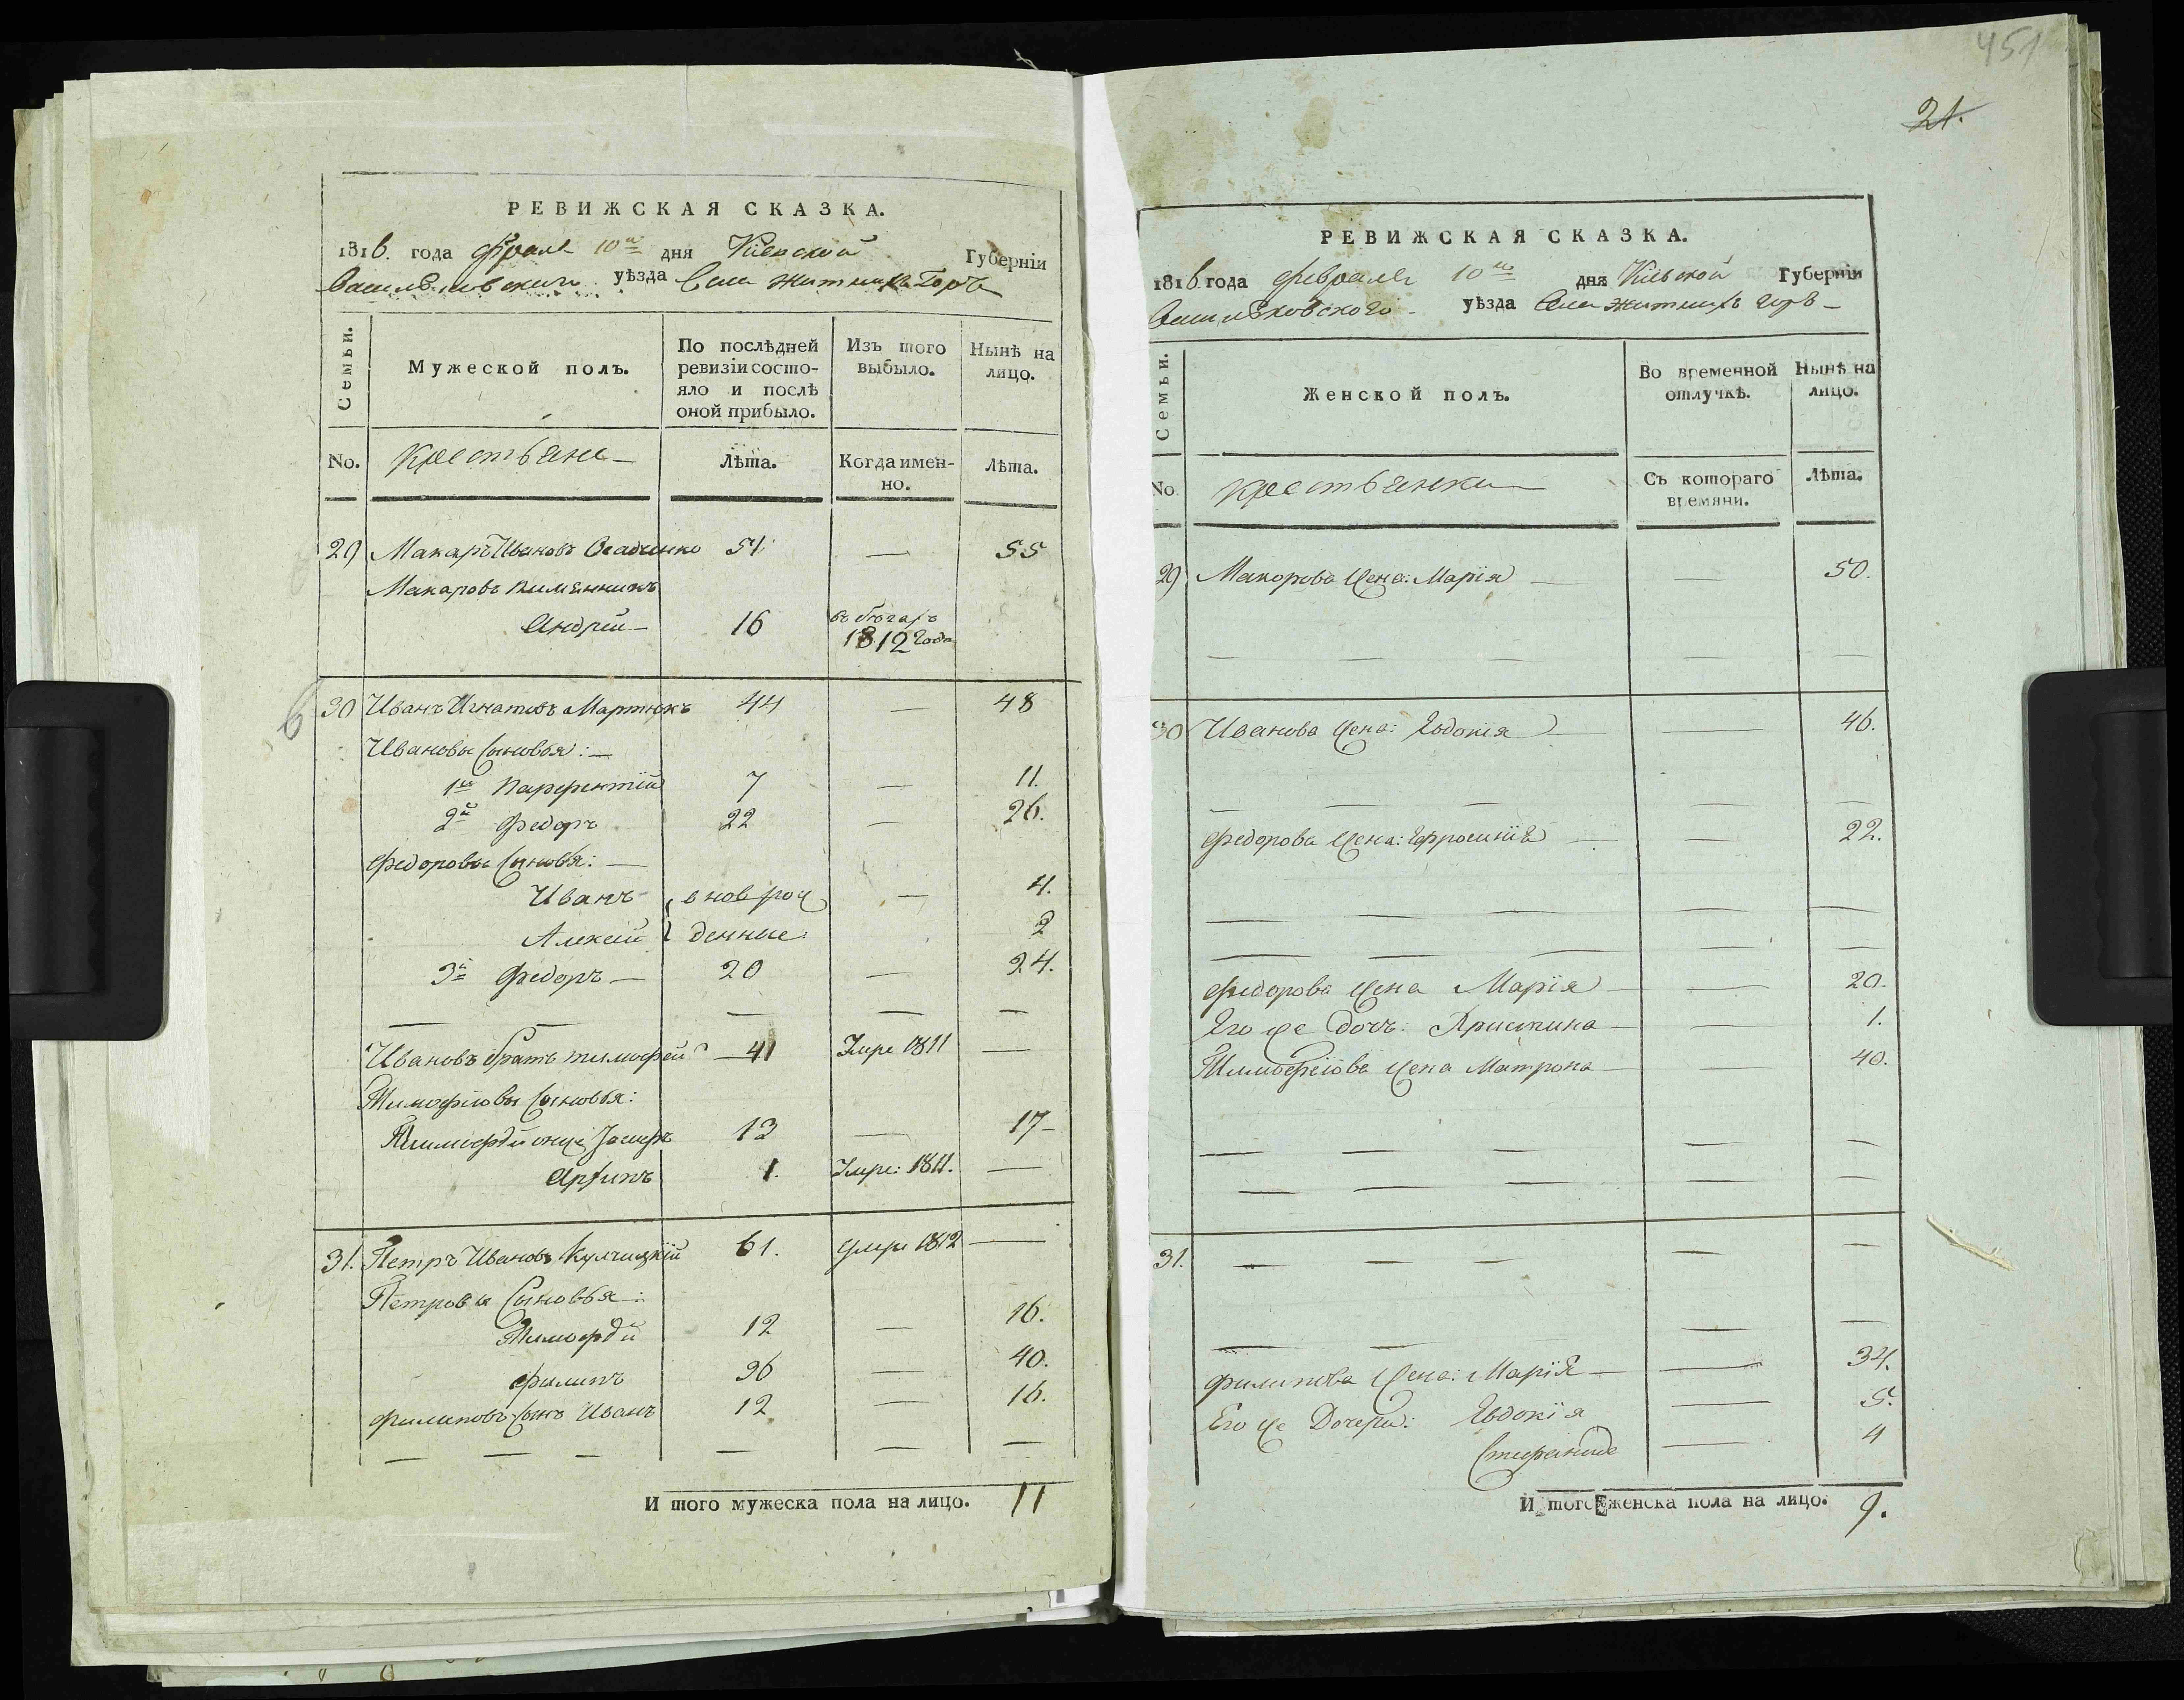 РЕВИЖСКАЯ СКАЗКА.
1816. года февраля 10го дня Кіевской Губерніи
Василковского уѣзда Села Житныхъ Горъ
Семьи.
Мужеской полъ.
По послѣдней ревизіи состояло и послѣ оной прибыло.
Изъ того выбыло.
Нынѣ на лицо.
No.
Крестьяне
Лѣта.
Когда именно.
Лѣта.
29 Макаръ Ивановъ Осадченко 51 — 55
Макаровъ племянникъ
Андрей — 16 въ бѣгахъ 1812 года
6
30 Иванъ Игнатовъ Мартнюкъ 44 — 48
Ивановы Сыновья: —
1й Парфентій 7 — 11.
2й Федоръ 22 — 26.
Федоровы Сыновья: —
Иванъ вновь рож — 4.
Алексей денные. 2
3й Федоръ — 20 — 24.
— — —
Ивановъ братъ Тимофей — 41 Умре 1811 —
Тимофеовы Сыновья:
Тимофей онже Іосифъ 13 — 17
Архипъ 1. Умре: 1811. —
31. Петръ Ивановъ Кулчицкій 61. умре 1812 —
Петровы Сыновья:
Тимофей 12 — 16.
Филипъ 36 — 40.
Филиповъ сынъ Иванъ 12 — 16.
— — — — — —
И того мужеска пола на лицо. 11
451
21.
РЕВИЖСКАЯ СКАЗКА.
1816 года февраля 10го дня Кіевской Губерніи
Василковского уѣзда Села Житныхъ горъ —
Семьи.
Женской полъ.
Во временной отлучкѣ.
Нынѣ на лицо.
No.
крестьянки
Съ котораго времяни.
Лѣта.
29 Макорова Жена: Марія — — 50.
— — — — —
30 Иванова Жена: Евдокія — — 46.
— — — — —
Федорова Жена: Ефросинія — — 22.
— — — — —
— — — — —
Федорова Жена Марія — — 20.
Его же Дочь: Христина — — 1.
Тимофеіова Жена Матрона — — 40.
— — — — —
— — — — —
31. — — — — —
— — — —
Филипова Жена: Марія — — 34.
Его же Дочери: Евдокія — 5.
Стефанида — 4
И того женска пола на лицо. 9.